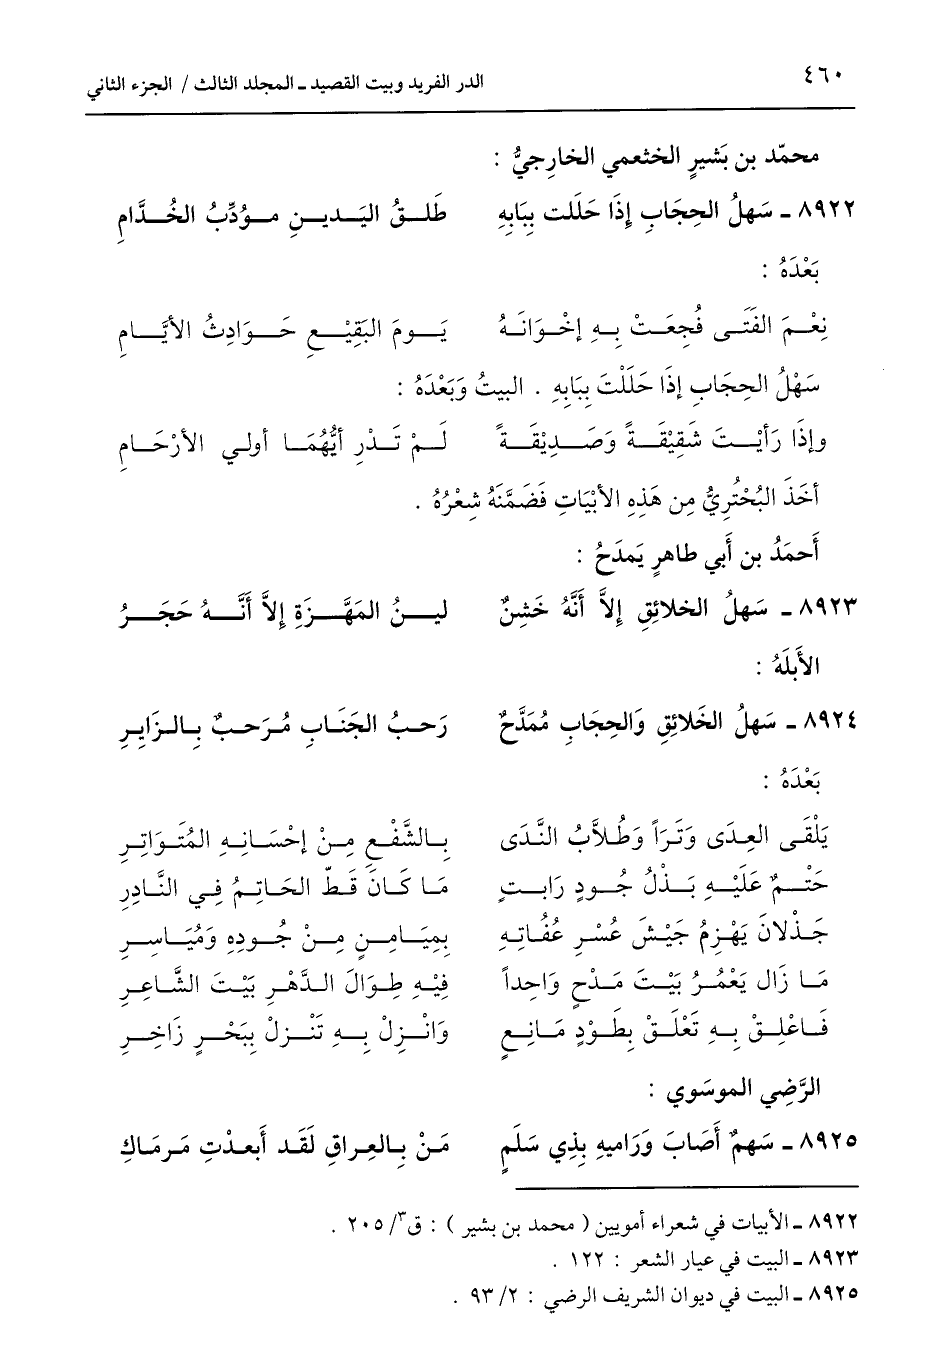 ٤٦٠ الدر الفريد وبيت القصيد ـ المجلد الثالث / الجزء الثاني
محمّد بن بَشيرٍ الخثعمي الخارجيُّ :
٨٩٢٢ ـ سَهلُ الحِجَابِ إِذَا حَلَلت بِبَابِهِ طَلقُ اليَدينِ مؤدِّبُ الخُدَّامِ
بَعْدَهُ :
نِعْمَ الفَتَى فُجعَتْ بِهِ إخْوَانَهُ يَومَ البَقِيْعِ حَوَادِثُ الأيَّامِ
سَهْلُ الحِجَابِ إذَا حَلَلْتَ بِبَابِهِ . البيتُ وَبَعْدَهُ :
وإذَا رَأيْتَ شَقِيْقَةً وَصَدِيْقَةً لَمْ تَدْرِ أيُّهُمَا أولي الأرْحَامِ
أخَذَ البُحْتُرِيُّ مِن هَذِهِ الأبْيَاتِ فَضَمَّنَهُ شِعْرُهُ .
أَحمَدُ بن أَبي طاهرٍ يَمدَحُ :
٨٩٢٣ ـ سَهلُ الخلائِقِ إِلاَّ أَنَّهُ خَشِنٌ لينُ المَهَّزَةِ إِلاَّ أَنَّهُ حَجَرُ
الأَبلَهُ :
٨٩٢٤ ـ سَهلُ الخَلائِقِ وَالحِجَابِ مُمَدَّحٌ رَحبُ الجَنَابِ مُرَحبٌ بِالزَايرِ
بَعْدَهُ :
يَلْقَى العِدَى وَتَراً وَطُلاَّبُ النَّدَى بِالشَّفْعِ مِنْ إحْسَانِهِ المُتَوَاتِرِ
حَتْمٌ عَلَيْهِ بَذْلُ جُودٍ رَابتٍ مَا كَانَ قَطّ الحَاتِمُ فِي النَّادِرِ
جَذْلانَ يَهْزِمُ جَيْشَ عُسْرِ عفُاتِهِ بِمَيَامِنٍ مِنْ جُودِهِ وَمُيَاسِرِ
مَا زَال يَعْمُرُ بَيْتَ مَدْحٍ وَاحِداً فِيْهِ طِوَالَ الدَّهْرِ بَيْتَ الشَّاعِرِ
فَاعْلِقْ بِهِ تَعْلَقْ بِطَوْدٍ مَانِعٍ وَانْزِلْ بِهِ تَنْزِلْ بِبَحْرٍ زَاخِرِ
الرَّضِي الموسَوي :
٨٩٢٥ ـ سَهمٌ أَصَابَ وَرَاميهِ بِذِي سَلَمٍ مَنْ بِالعِراقِ لَقَد أَبعدْتِ مَرمَاكِ
٨٩٢٢ ـ الأبيات في شعراء أمويين ( محمد بن بشير ) : ق٣/ ٢٠٥ .
٨٩٢٣ ـ البيت في عيار الشعر : ١٢٢ .
٨٩٢٥ ـ البيت في ديوان الشريف الرضي : ٢/ ٩٣ .